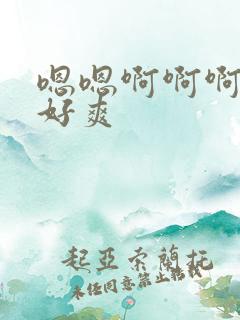 嗯嗯啊啊啊
好爽
起亚索蘭托
未经同意禁止转载